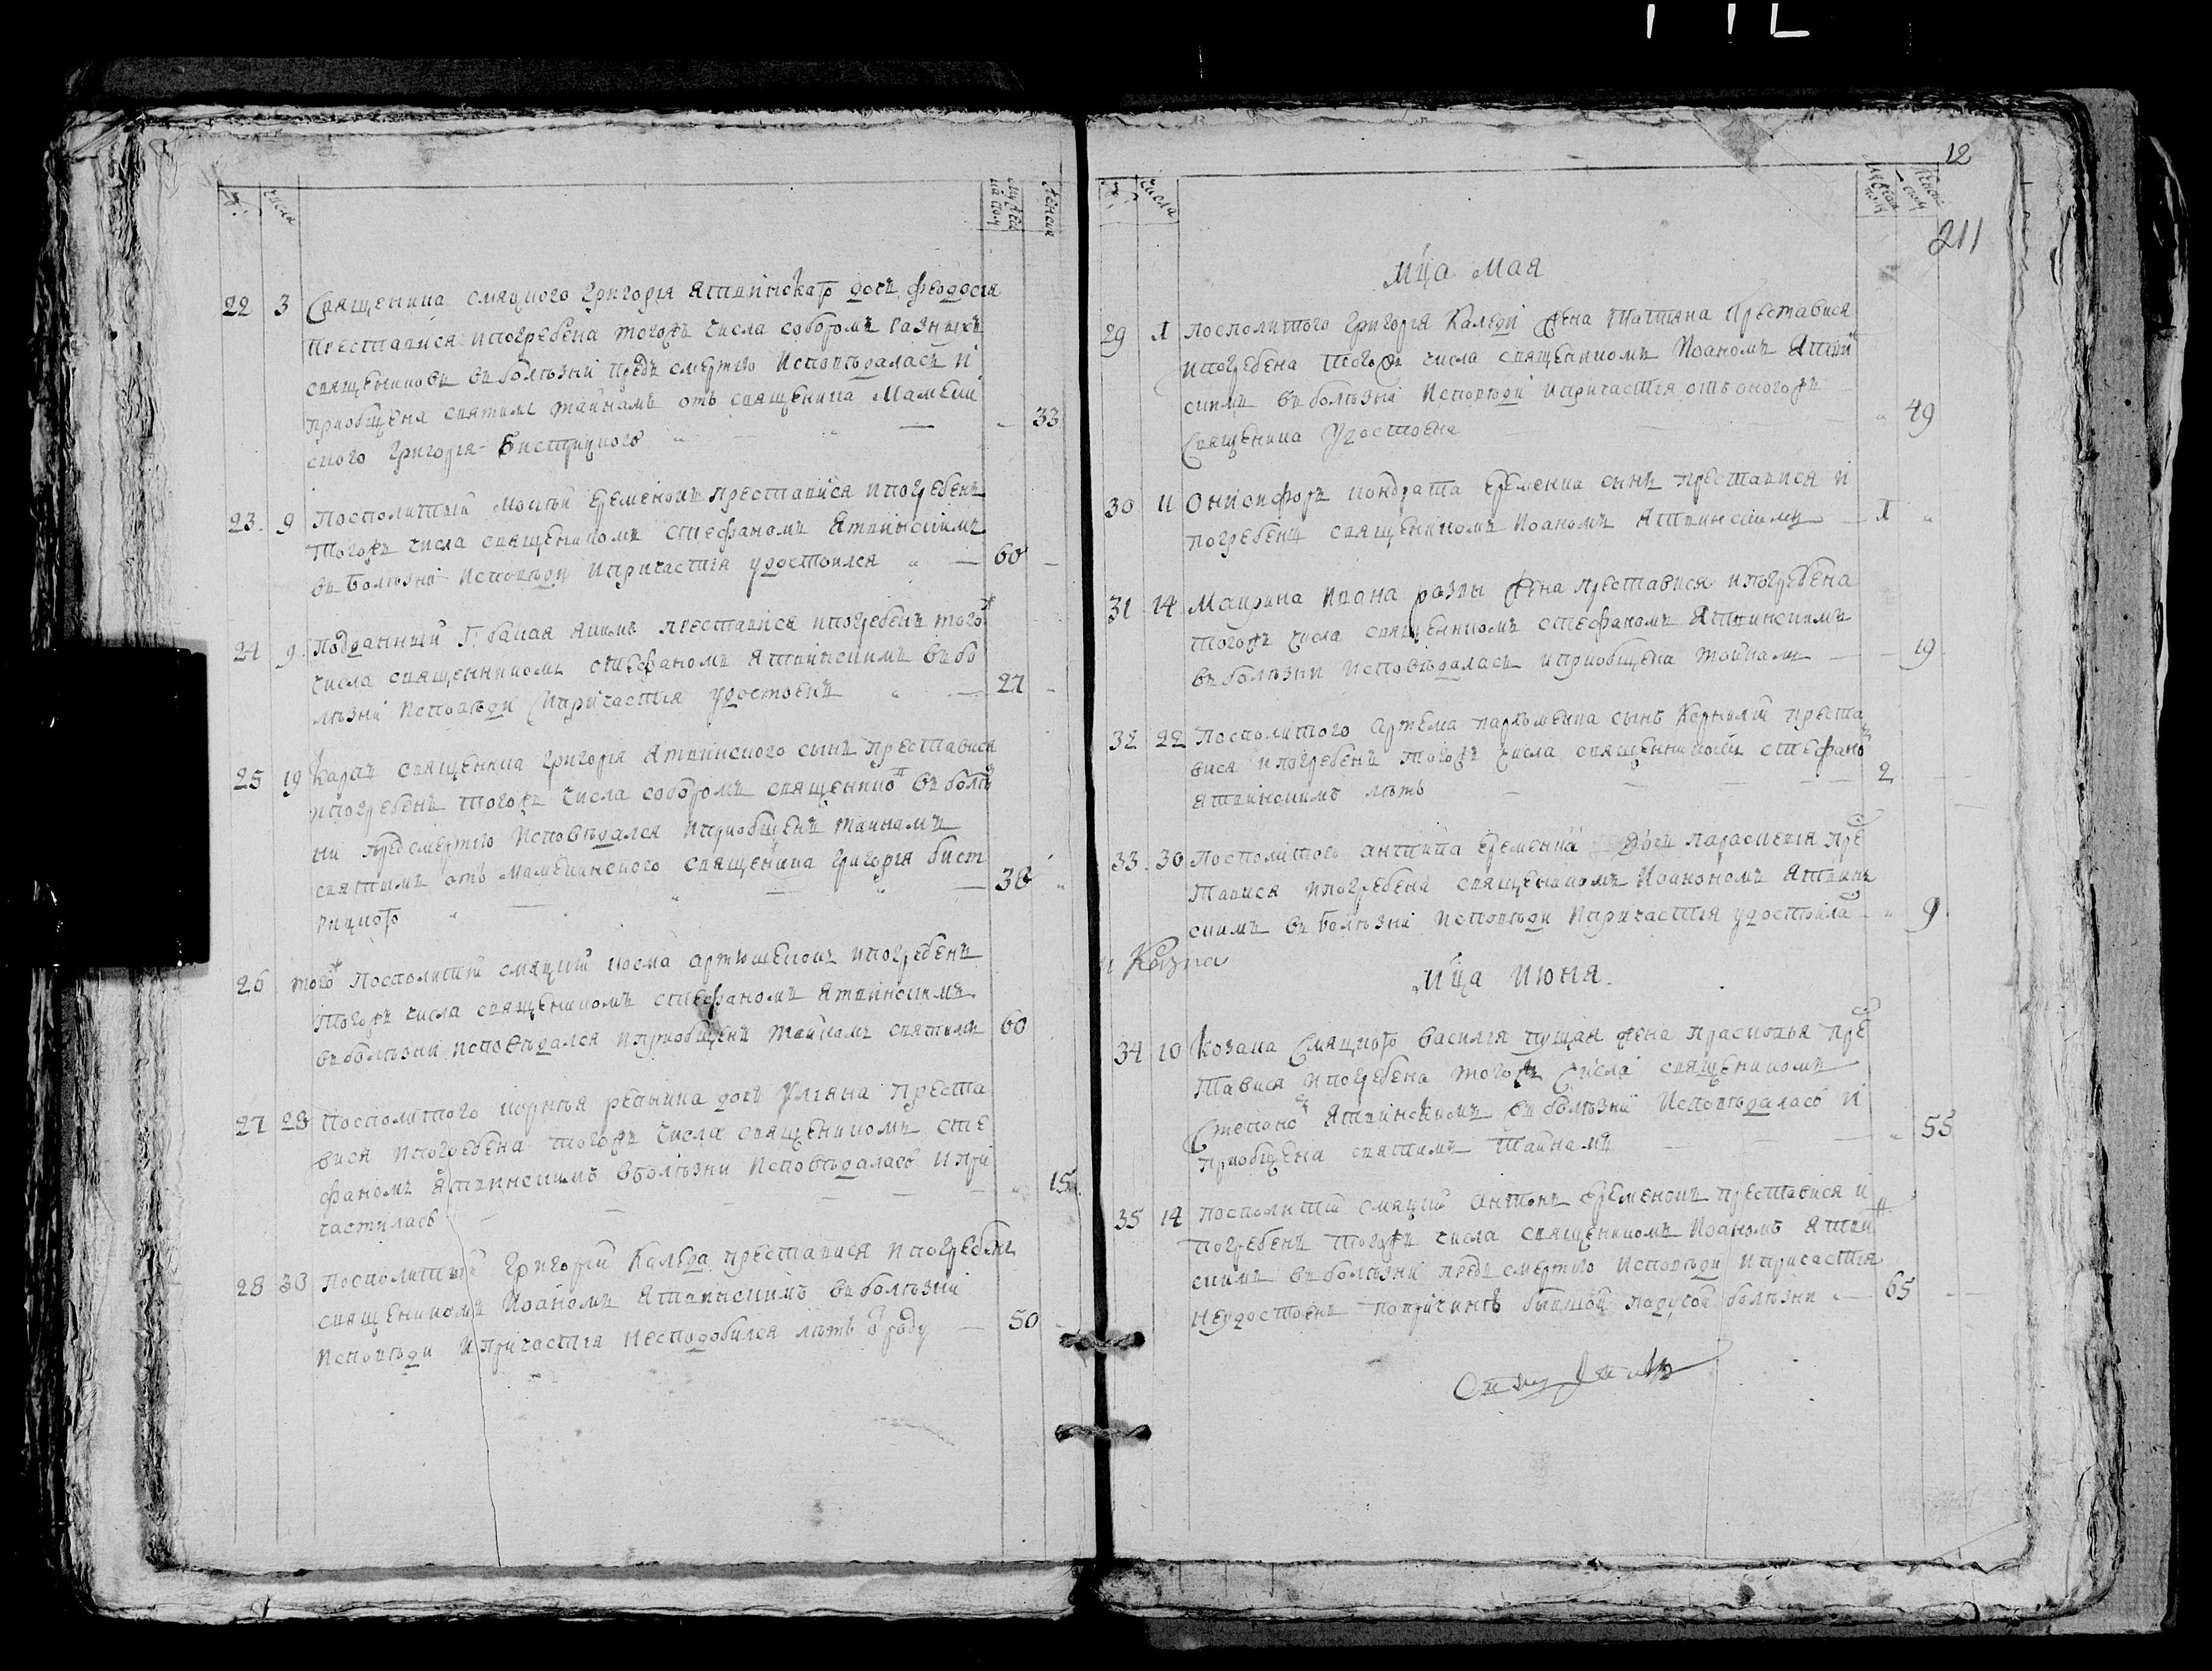 № числа мужеска полу женска
22 3 Священика смяцкого Григорія Ятвинскаго дочь Феодосія
преставися и погребена тогожъ числа соборомъ разныхъ
священиковъ въ болѣзни предъ смертію исповѣдалась и
приобщена святимъ тайнамъ отъ священика Мамеки
ского Григорія Бистрицкого " — " 33
23. 9 Посполитий Мокѣй Еременокъ преставися и погребенъ
тогожъ числа священикомъ Стефаномъ Ятвинскимъ
въ болѣзни исповѣди и причастія удостоился " — 60 —
24 9. Подданный якимъ преставися и погребенъ тогож
числа священникомъ Стефаномъ Ятвинскимъ въ бо
лѣзни исповѣди и причастія удостоенъ " — 27 "
25 19 Карпъ священика Григорія Ятвинского сынъ преставися
и погребенъ тогожъ числа соборомъ священико въ болѣз
ни предсмертію исповѣдался и приобщенъ тайнамъ
святымъ отъ мамекинского священика Григорія Бист
рицкого " — " — " — 38 "
26 тогож Посполитий смяцкий косма Артюшенокъ и погребенъ
тогожъ числа священикомъ Стефаномъ Ятвинскимъ
въ болѣзни исповѣдался и приобщенъ тайнамъ святимъ 60
27 28 Посполитого корнѣя репьика дочь Уліяна преста
вися и погребена тогожъ числа священикомъ Сте
фаномъ Ятвинскимъ вболѣзни исповѣдалась и при
частилась — — — — — " 15
28 30 Посполитый Григорій Каледа преставися и погребенъ
священикомъ Иоаномъ Ятвинскимъ въ болѣзни
исповѣди и причастія несподобился лѣтъ — 50 "
12
№ числа мужеска полу женска полу
211
мца мая
29 1 посполитого Григорія Каледи жена Татіяна преставися
и погребена тогожъ числа священикомъ Иоаномъ Ятвин
скимъ въ болѣзни исповѣди и причастія отъ оногожъ
священика удостоена — — " 49
30 11 Онисифоръ кондрата Еременка сынъ преставися и
погребенъ священикомъ Иоаномъ Ятвинскимъ — 1 "
31 14 Маврина ивана жена преставися и погребена
тогожъ числа священикомъ Стефаномъ Ятвинскимъ
въ болѣзни исповѣдалась и приобщена тайнамъ — — 19
32 22 Посполитого Артема пархѣменка сынъ Корнилій преста
вися и погребенъ тогожъ числа священикомъ Стефаном
Ятвинскимъ лѣтъ — — — — 2 —
33. 30 Посполитого Антипа Еременка дочь Параскевія прес
тавися и погребена священикомъ Иоаномъ Ятвинъ
скимъ въ болѣзни исповѣди и причастія удостоила — " 9.
мца июня.
34 10 Козака смяцкого василія пущая жена прасковья прес
тавися и погребена тогожъ числа священикомъ
Степаном Ятвинскимъ въ болѣзни исповѣдалась и
приобщена святимъ тайнамъ — — — " 55
35 14 посполитий смяцкий Антонъ Еременокъ преставися и
погребенъ тогожъ числа священикомъ Иоаномъ Ятвин
скимъ въ болѣзни предъ смертію исповѣди и причастія
неудостоенъ попричинѣ бывшой падучой болѣзни — 65 —